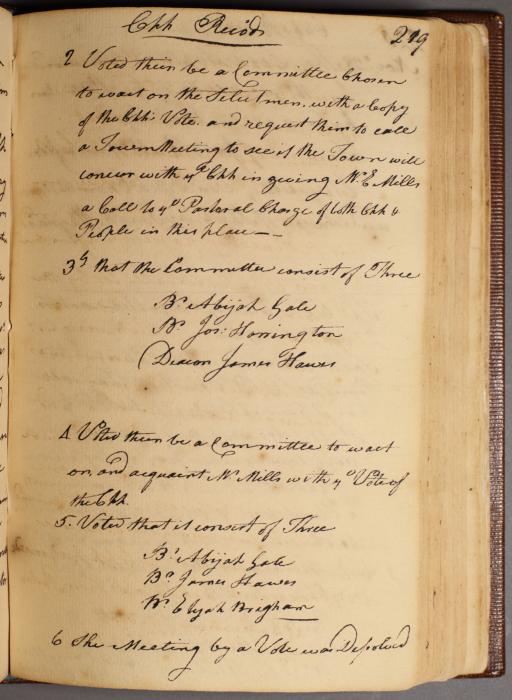 Chh Records
219
2 Voted there be a Committee Chosen
to wait on the Selectmen. with a Copy
of the Chh's Vote. and request them to call
a Town Meeting to see if the Town will
concur with ye Chh in giving Mr. E Mills
a Call to ye Pastoral Charge of both Chh &
People in this place —
3ly that the Committee consist of Three
Br. Abijah Gale
Br. Jos: Harrington
Deacon James Hawes
4 Voted there be a Committee to wait
on, and acquaint Mr. Mills with ye Vote of
the Chh.
5. Voted that it consist of Three
Br. Abijah Gale
Br. James Hawes
Br. Elijah Brigham
6 The Meeting by a Vote was Desolved